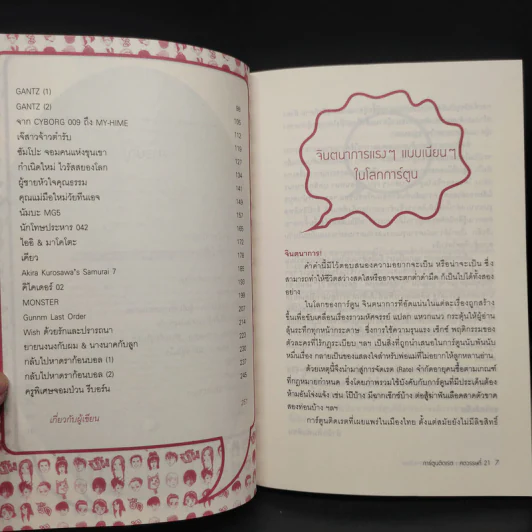 GANTZ (1)
GANTZ (2)
จาก CYBORG 009 ถึง MY-HIME
เจ๊สาวจ้าวตำรับ
ซัมโปะ จอมคนแห่งขุนเขา
กำเนิดใหม่ ไวรัสสยองโลก
ผู้ชายหัวใจคุณธรรม
คุณแม่มือใหม่วัยทีนเอจ
นัมบะ MG5
นักโทษประหาร 042
ไออิ & มาโคโตะ
เคียว
Akira Kurosawa's Samurai 7
ดีไคเดอร์ 02
MONSTER
Gunnm Last Order
Wish ด้วยรักและปรารถนา
ยายนงนงกับผม & นางนาคกับลูก
กลับไปหาดราก้อนบอล (1)
กลับไปหาดราก้อนบอล (2)
ครูพิเศษจอมป่วน รีบอร์น
เกี่ยวกับผู้เขียน
จินตนาการแรงๆ แบบเนียนๆ
ในโลกการ์ตูน
จินตนาการ!
คำคำนี้มีไว้ตอบสนองความอยากจะเป็น หรือน่าจะเป็น ซึ่ง
สามารถทำให้ชีวิตสว่างสดใสหรืออาจจะตกต่ำดำมืด ก็เป็นไปได้ทั้งสอง
อย่าง
ในโลกของการ์ตูน จินตนาการที่อัดแน่นในแต่ละเรื่องถูกสร้าง
ขึ้นเพื่อขับเคลื่อนเรื่องราวมหัศจรรย์ แปลก แหวกแนว กระตุ้นให้ผู้อ่าน
ลุ้นระทึกทุกหน้ากระดาษ ซึ่งการใช้ความรุนแรง เซ็กซ์ พฤติกรรมของ
ตัวละครที่ไร้กฎระเบียบ ฯลฯ เป็นสิ่งที่ถูกนำเสนอในการ์ตูนนับพันนับ
หมื่นเรื่อง กลายเป็นของแสลงใจสำหรับพ่อแม่ที่ไม่อยากให้ลูกหลานอ่าน
ด้วยเหตุนี้จึงนำมาสู่การจัดเรต (Rate) จำกัดอายุคนซื้อตามเกณฑ์
ที่กฎหมายกำหนด ซึ่งโดยภาพรวมใช้บังคับกับการ์ตูนที่มีประเด็นต้อง
ห้ามอันโจ่งแจ้ง เช่น โป๊บ้าง มีฉากเซ็กซ์บ้าง ต่อสู้ฆ่าฟันเลือดสาดตัวขาด
สองท่อนบ้าง ฯลฯ
การ์ตูนติดเรตที่เผยแพร่ในเมืองไทย ตั้งแต่สมัยยังไม่มีลิขสิทธิ์
7